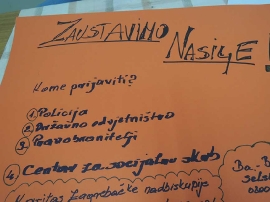 ZAUSTAVIMO
NASILJE !
Kome prijaviti?
1 Policija
2 Državno odvjetništvo
3 Pravobranitelji
4 Centar za socijalnu skrb
Caritas Zagrebačke nadbiskupije
Ba. B